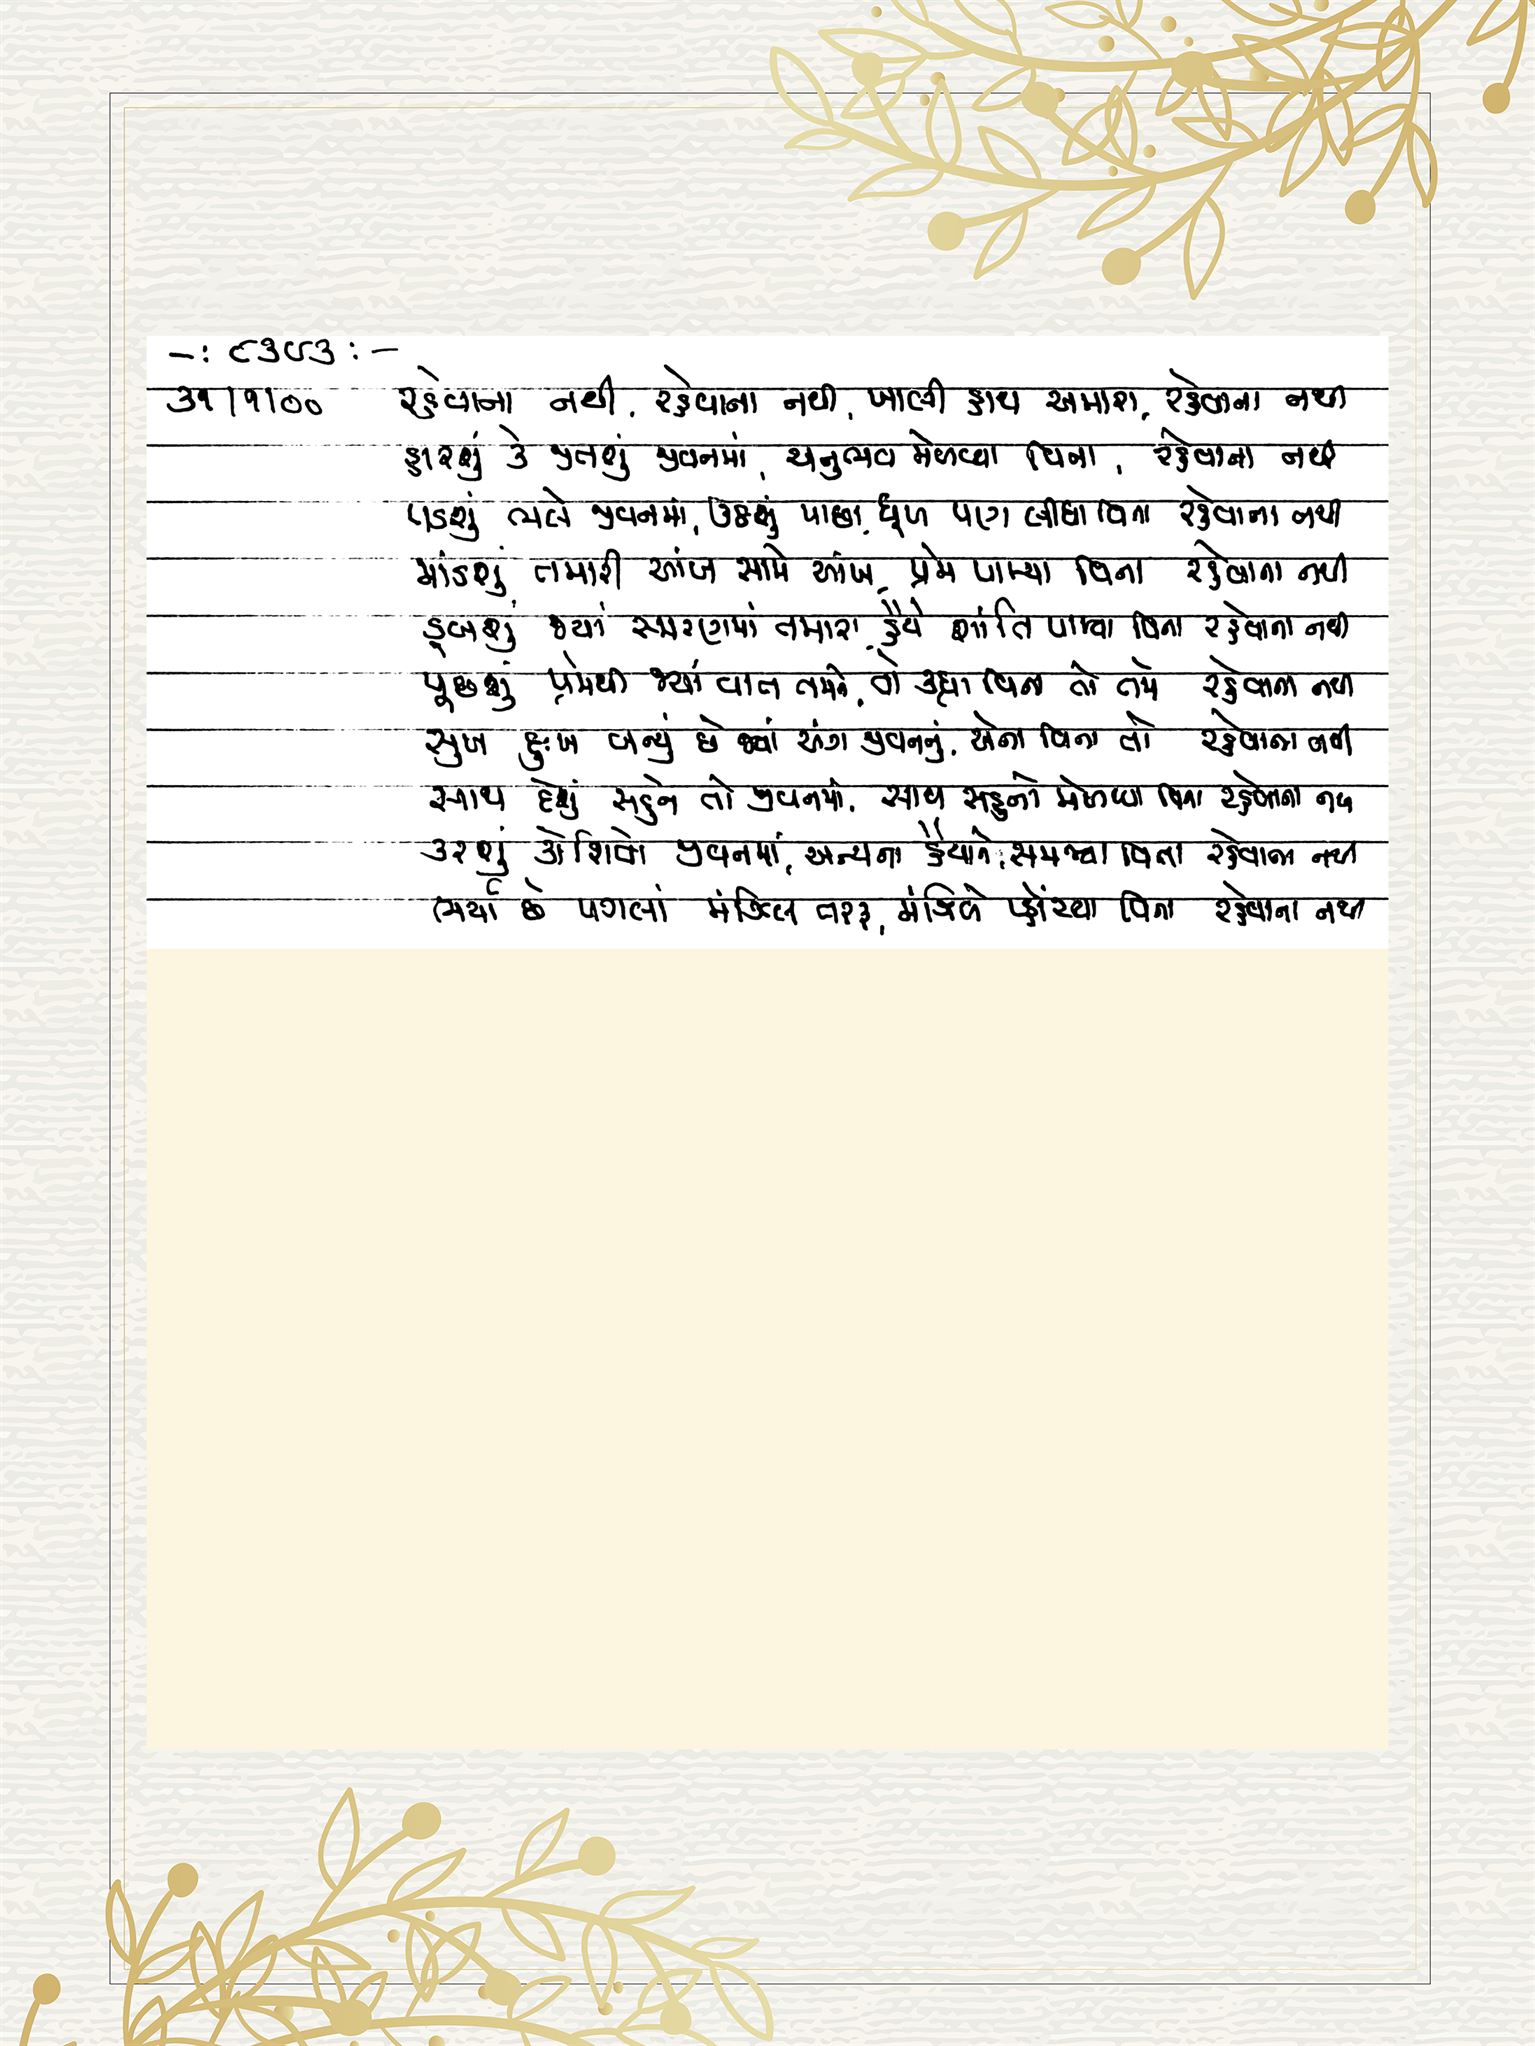 -: ૯૩૯૩ :-
૩૧/૧/૦૦ રહેવાના નથી, રહેવાના નથી, ખાલી હાથ અમારા, રહેવાના નથી
હારશું કે જીતશું જીવનમાં, અનુભવ મેળવ્યા વિના, રહેવાના નથી
પડશું ભલે જીવનમાં, ઉઠશું પાછા, ધૂળ પણ લીધા વિના રહેવાના નથી
માંડશું તમારી આંખ સામે આંખ, પ્રેમ પામ્યા વિના રહેવાના નથી
ડૂબશું જ્યાં સ્મરણમાં તમારા, હૈયે શાંતિ પામ્યા વિના રહેવાના નથી
પૂછશું પ્રેમથી જ્યાં વાત તમને, કહ્યા વિના તો તમે રહેવાના નથી
સુખ દુઃખ બન્યું છે જ્યાં અંગ જીવનનું, એના વિના તો રહેવાના નથી
સાથ દેશું સહુને તો જીવનમાં, સાથ સહુનો મેળવ્યા વિના રહેવાના નથી
કરશું કોશિશો જીવનમાં, અન્યના હૈયાને, સમજ્યા વિના રહેવાના નથી
ભર્યા છે પગલાં મંઝિલ તરફ, મંઝિલે પહોંચ્યા વિના રહેવાના નથી